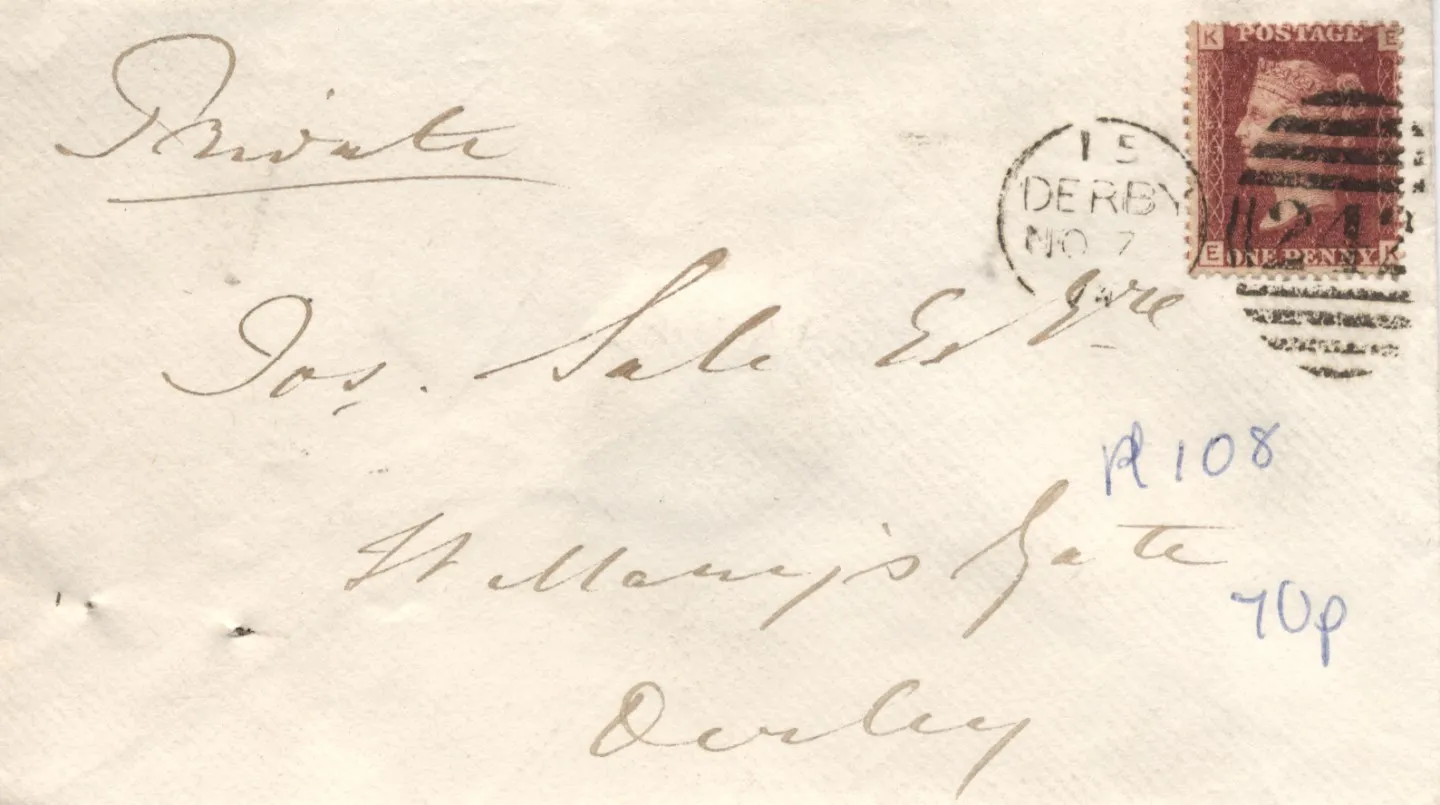 Private
K POSTAGE E
E ONE PENNY K
15
DERBY
NO 7
242
Jos. Sale Esqre
Pl 108
St Mary's Gate
70p
Derby